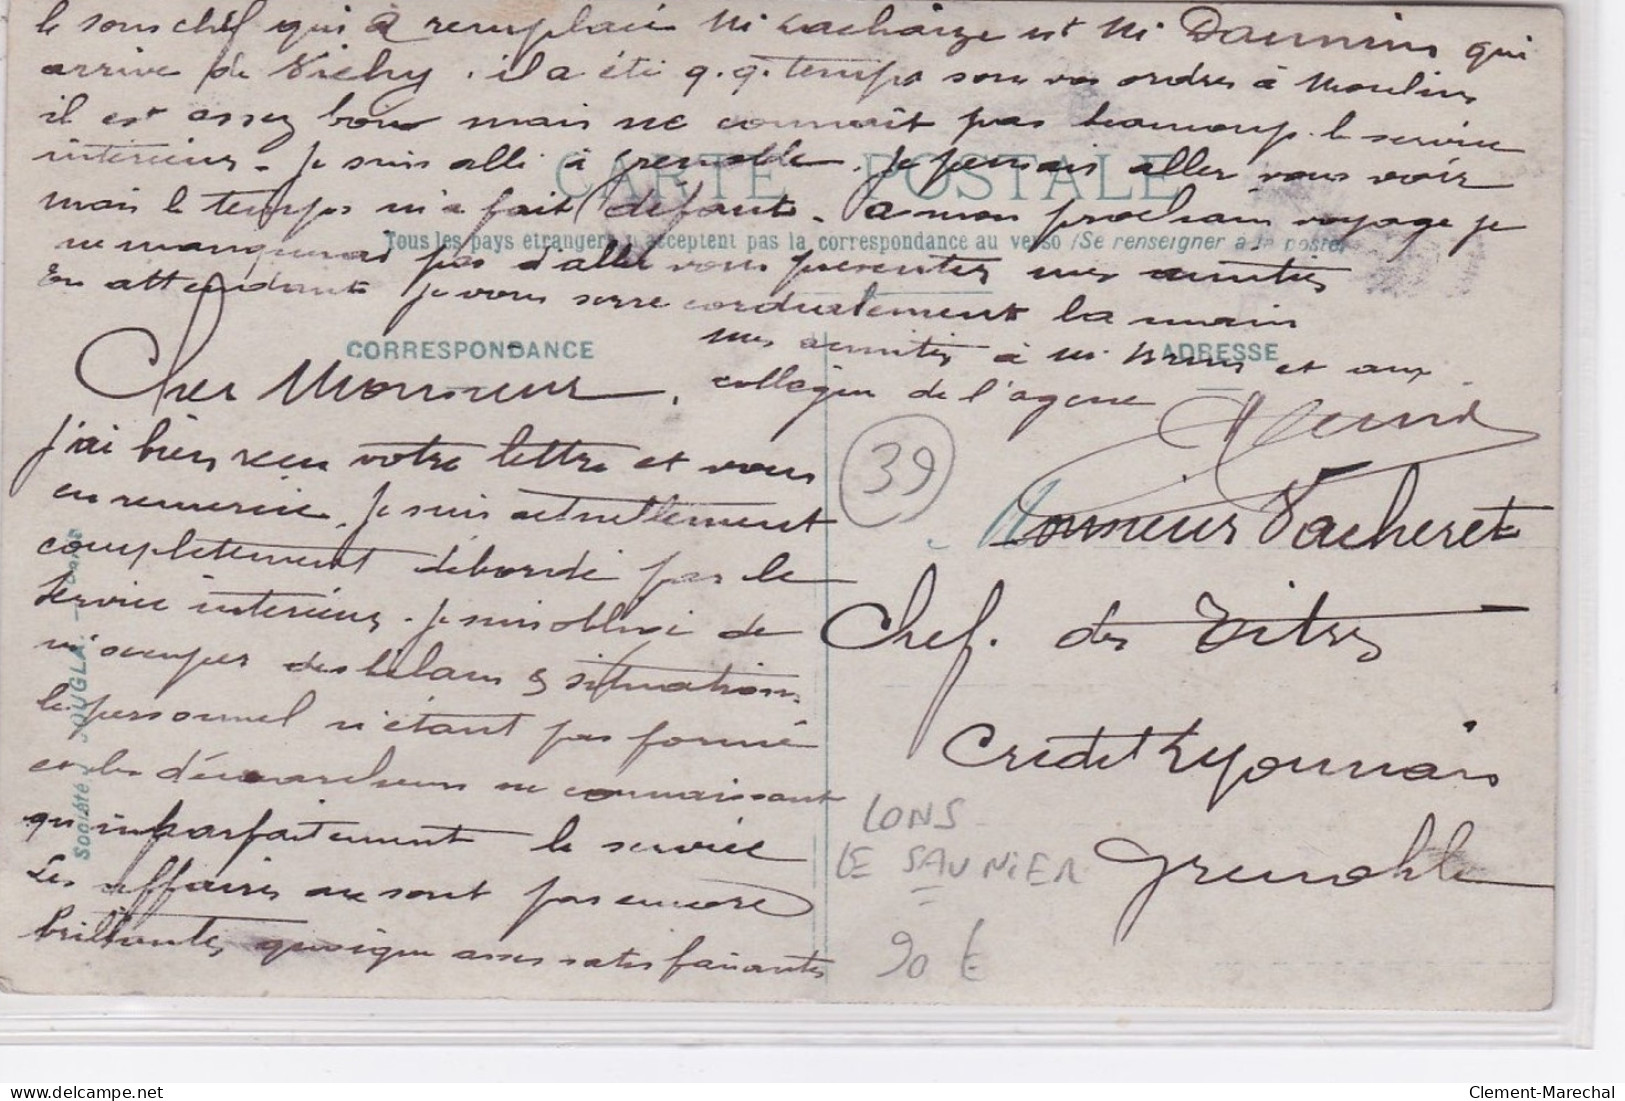 le sous chef qui a remplacé Mr Lachaize est Mr Daumin qui
arrive de Vichy. il a été q.q. temps sous vos ordres à Moulins
il est assez bon mais ne connait pas beaucoup le service
intérieur. Je suis allé à Grenoble. Je pensais aller vous voir
mais le temps m'a fait défaut. a mon prochain voyage je
ne manquerai pas d'aller vous présenter mes amitiés
En attendant je vous serre cordialement la main
mes amitiés à Mr et aux
collègues de l'agence
CARTE POSTALE
Tous les pays étrangers n'acceptent pas la correspondance au verso (Se renseigner à la poste)
CORRESPONDANCE
ADRESSE
Cher Monsieur,
J'ai bien reçu votre lettre et vous
en remercie. Je suis actuellement
complètement débordé par le
service intérieur. Je suis obligé de
m'occuper des bilans & situations
le personnel n'étant pas formé
et les démarcheurs ne connaissant
qu'imparfaitement le service
Les affaires ne sont pas encore
brillantes, quoique assez satisfaisantes
39
Monsieur Vacheret
Chef des Titres
Crédit Lyonnais
Grenoble
LONS
LE SAUNIER
90 €
Société JOUGLA
delcampe.net
Clement-Marechal